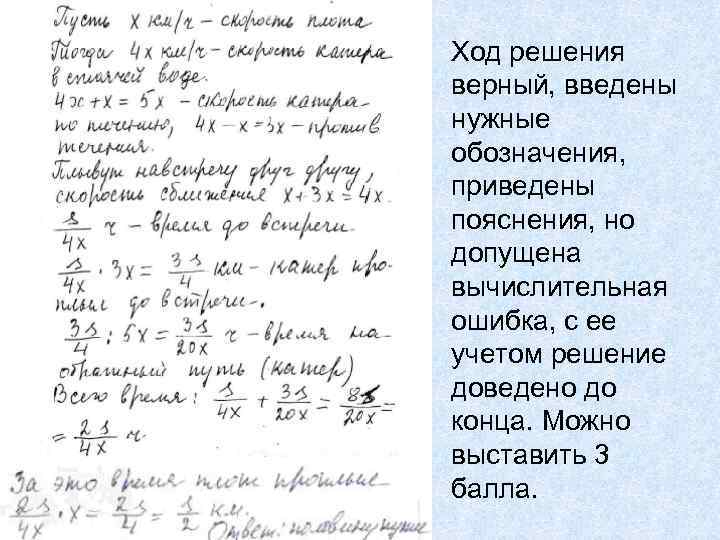 Пусть x км/ч - скорость плота
Тогда 4x км/ч - скорость катера
в стоячей воде.
4x+x = 5x - скорость катера
по течению, 4x-x=3x - против
течения.
Плывут навстречу друг другу,
скорость сближения x+3x=4x.
s/4x ч - время до встречи.
s/4x · 3x = 3s/4 км - катер про-
плыл до встречи.
3s/4 : 5x = 3s/20x ч - время на
обратный путь (катер)
Всего время: s/4x + 3s/20x = 8s/20x =
= 2s/4x ч
За это время плот проплыв
2s/4x · x = 2s/4 = s/2 км.
Ответ: половину пути
Ход решения
верный, введены
нужные
обозначения,
приведены
пояснения, но
допущена
вычислительная
ошибка, с ее
учетом решение
доведено до
конца. Можно
выставить 3
балла.